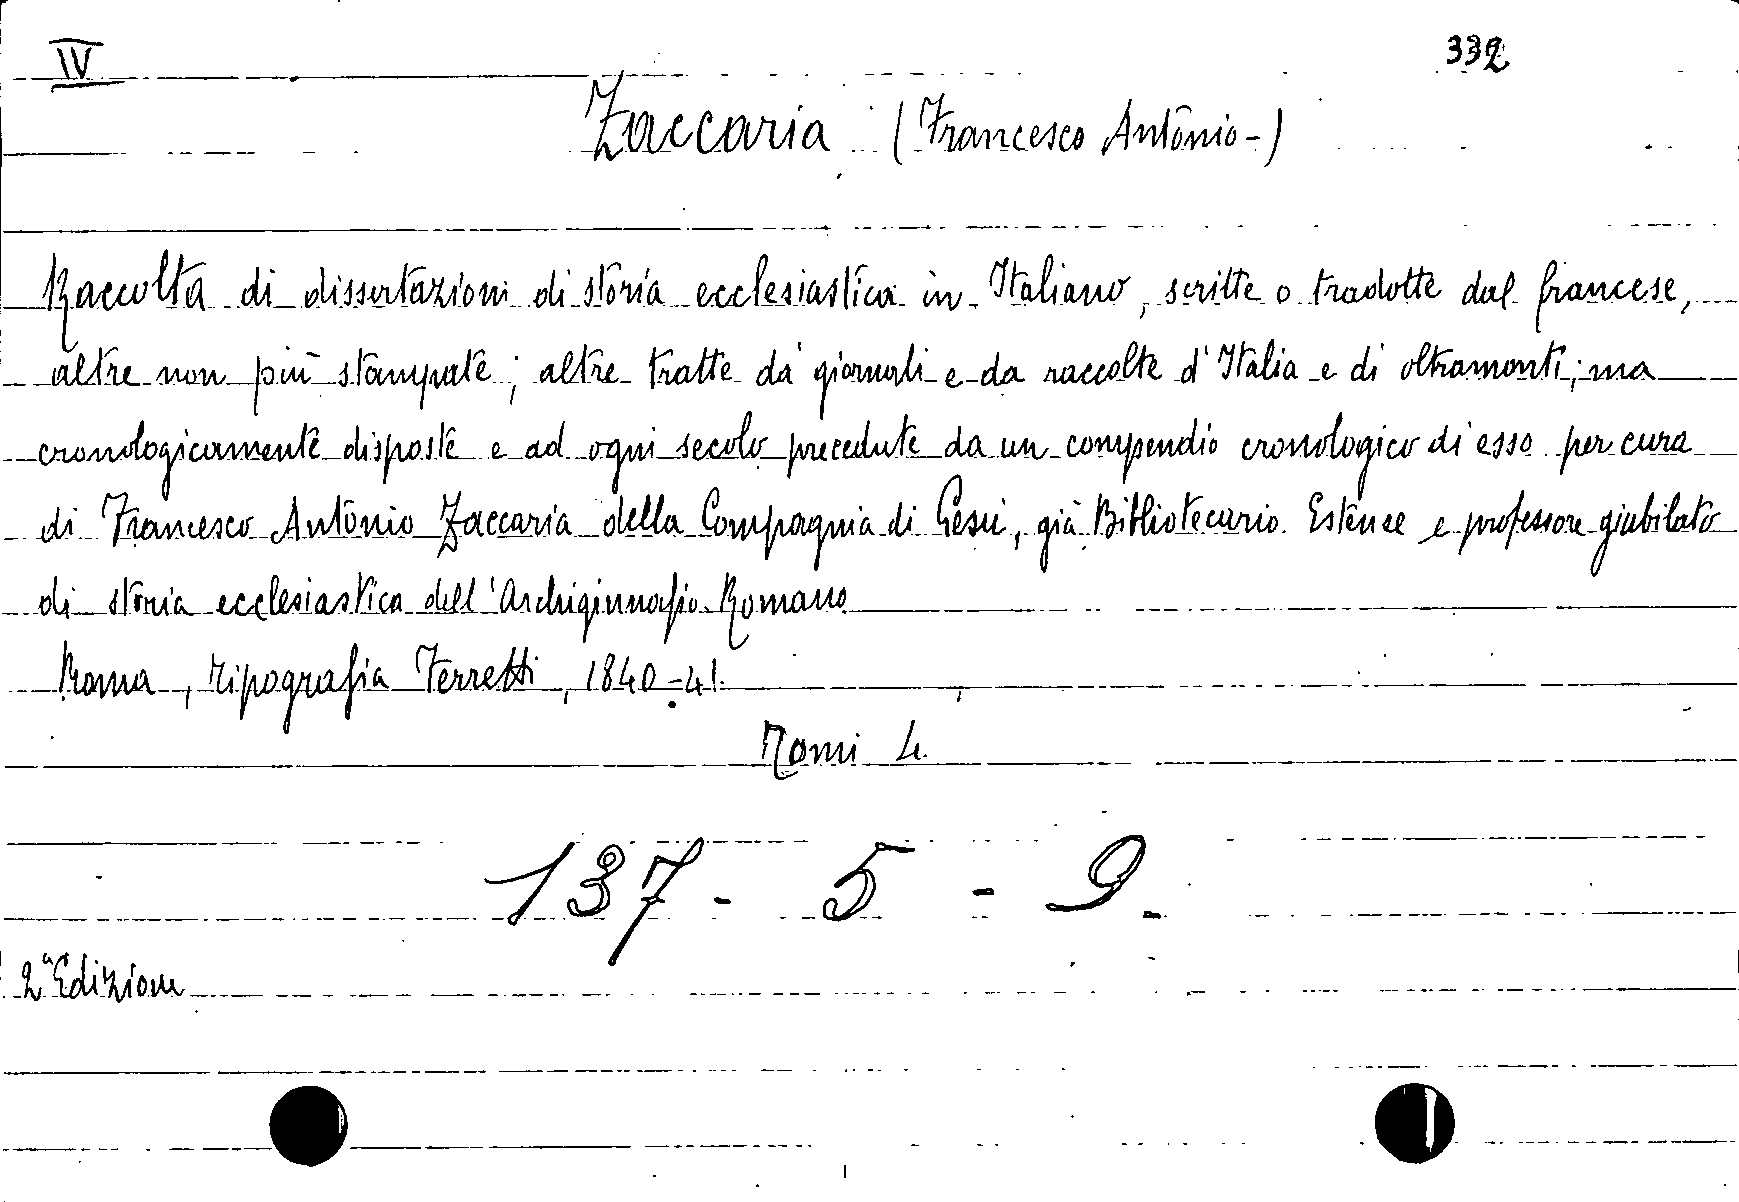 IV
332
Zaccaria (Francesco Antonio-)
Raccolta di dissertazioni di storia ecclesiastica in Italiano, scritte o tradotte dal francese,
altre non più stampate; altre tratte da' giornali e da raccolte d'Italia e di oltramonti; ma
cronologicamente disposte e ad ogni secolo precedute da un compendio cronologico di esso per cura
di Francesco Antonio Zaccaria della Compagnia di Gesù, già Bibliotecario Estense e professore giubilato
di storia ecclesiastica dell'Archiginnasio Romano
Roma, Tipografia Ferretti, 1840-41.
Tomi 4.
137 - 5 - 9.
2ª Edizione